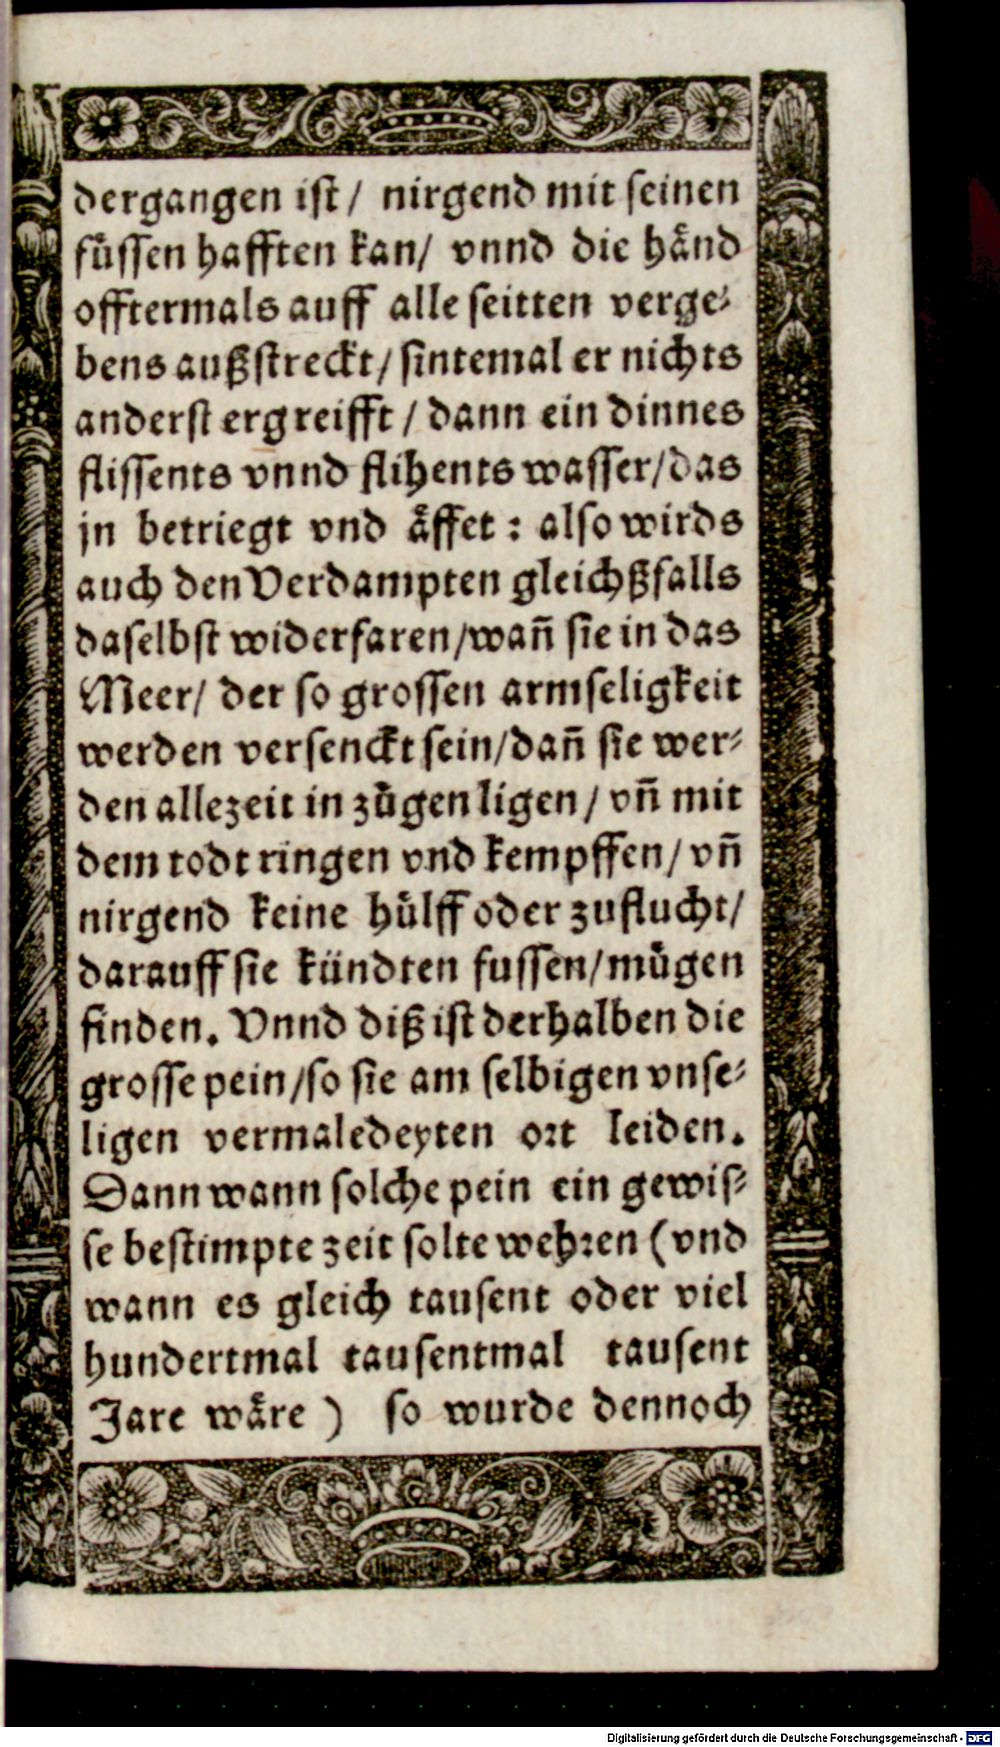 dergangen ist/ nirgend mit seinen
fuͤssen hafften kan/ vnnd die haͤnd
offtermals auff alle seitten verge⸗
bens außstreckt/ sintemal er nichts
anderst ergreifft/ dann ein dinnes
flissents vnnd flihents wasser/das
jn betriegt vnd aͤffet: also wirds
auch den Verdampten gleichßfalls
daselbst widerfaren/wañ sie in das
Meer/ der so grossen armseligkeit
werden versenckt sein/dañ sie wer⸗
den allezeit in zuͤgen ligen/ vñ mit
dem todt ringen vnd kempffen/ vñ
nirgend keine huͤlff oder zuflucht/
darauff sie kündten fussen/muͤgen
finden. Vnnd diß ist derhalben die
grosse pein/so sie am selbigen vnse⸗
ligen vermaledeyten ort leiden.
Dann wann solche pein ein gewis⸗
se bestimpte zeit solte wehren (vnd
wann es gleich tausent oder viel
hundertmal tausentmal tausent
Jare waͤre) so wurde dennoch
Digitalisierung gefördert durch die Deutsche Forschungsgemeinschaft - DFG